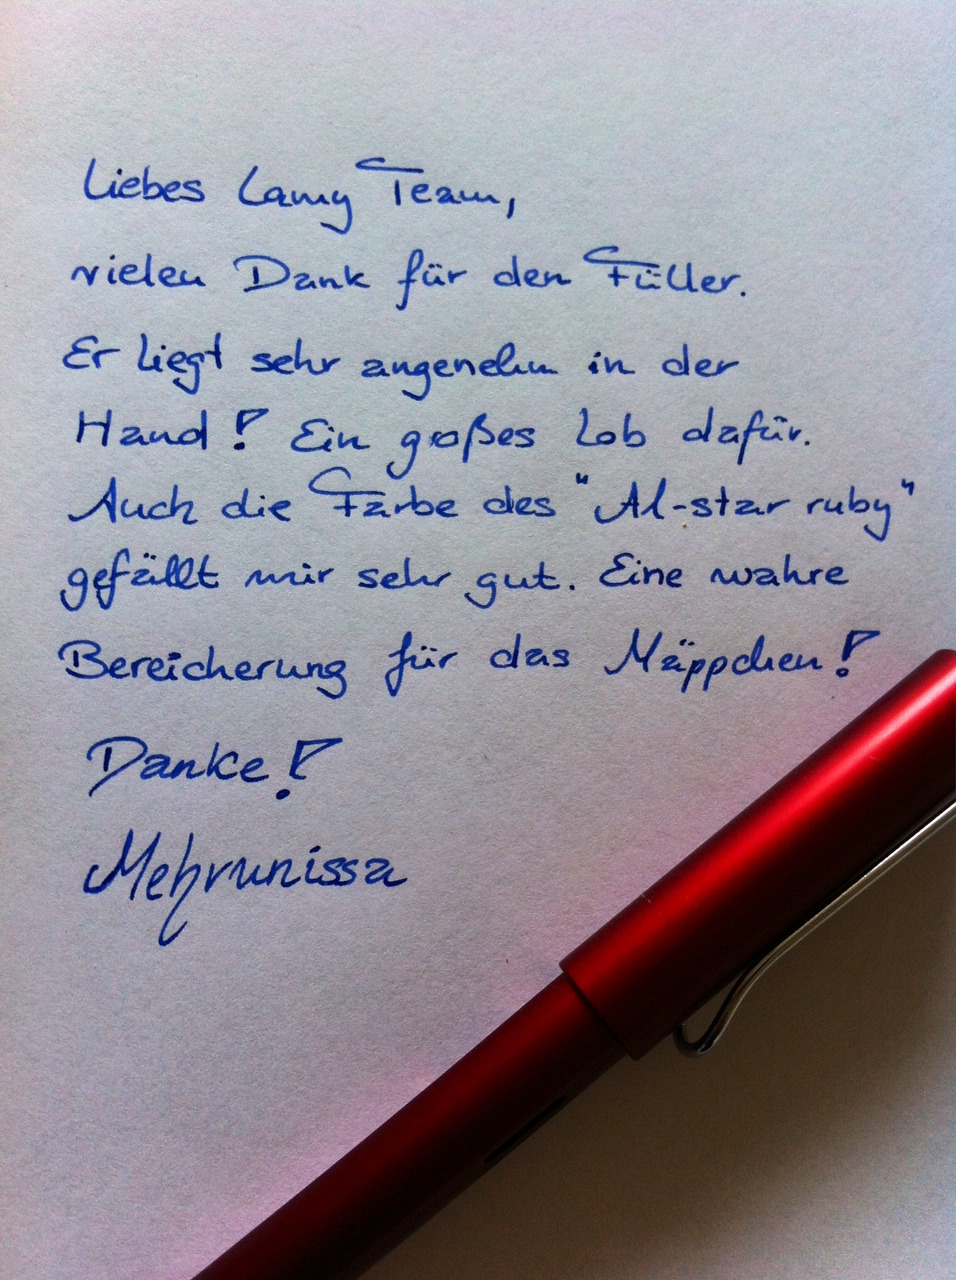 Liebes Lamy Team,
vielen Dank für den Füller.
Er liegt sehr angenehm in der
Hand! Ein großes Lob dafür.
Auch die Farbe des "Al-star ruby"
gefällt mir sehr gut. Eine wahre
Bereicherung für das Mäppchen!
Danke!
Mehrunissa